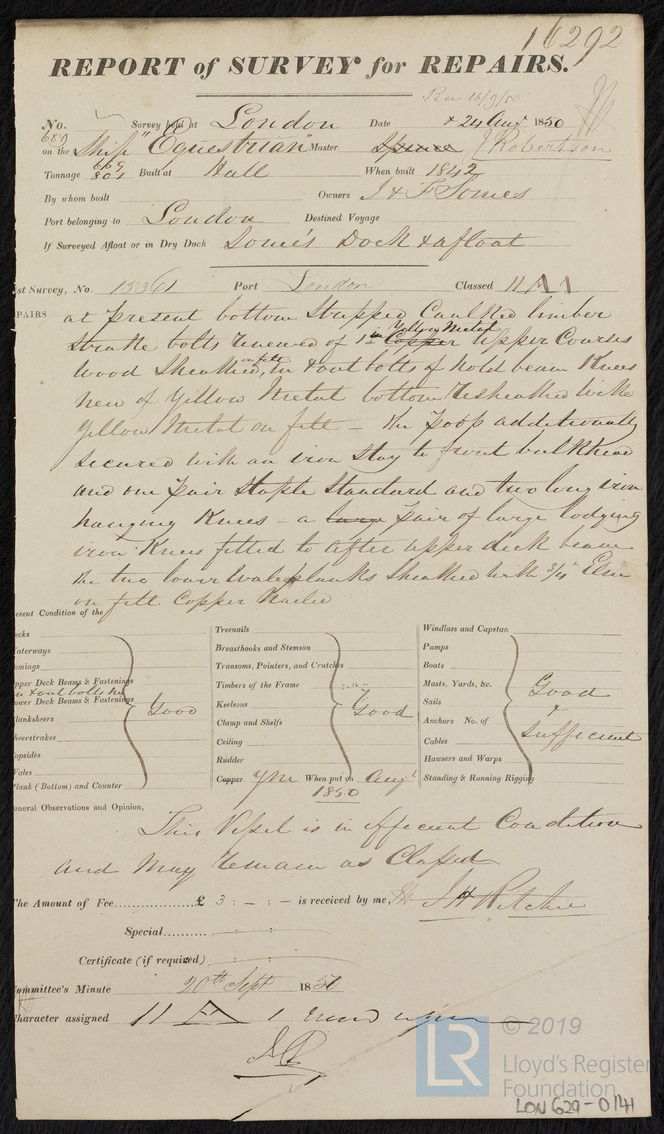 16292
REPORT of SURVEY for REPAIRS.
Rec 16/9/50
No. Survey held at London Date & 24 Augt 1850
689 on the Ship "Equestrian" Master Spence J Robertson
Tonnage 669 801 Built at Hull When built 1842
By whom built Owners J & F Somes
Port belonging to London Destined Voyage
If Surveyed Afloat or in Dry Dock Some's Dock & afloat
st Survey, No. 15361 Port London Classed 11 A 1
PAIRS at present bottom Stripped Caulked limber
Strake bolts renewed of 1 in Yellow Metal Copper Upper Courses
Wood Sheathed, on felt In & out bolts of hold beam Knees
new of Yellow Metal bottom resheathed with
Yellow Metal on felt – the poop additionally
secured with an iron Stay to front bulkhead
and one pair Staple Standard and two long iron
hanging Knees – a large pair of large lodging
iron Knees fitted to after upper deck beam
the two lower Wale planks Sheathed with 3/4 Elm
on felt Copper Nailed
esent Condition of the
ecks
aterways
omings
pper Deck Beams & Fastenings
In & out bolts
ower Deck Beams & Fastenings
lanksheers
heerstrakes
opsides
Vales
lank (Bottom) and Counter
Good
Treenails
Breasthooks and Stemson
Transoms, Pointers, and Crutches
Timbers of the Frame
Keelsons
Clamp and Shelfs
Ceiling
Rudder
Copper YM When put on Augt
1850
Good
Windlass and Capstan
Pumps
Boats
Masts, Yards, &c.
Sails
Anchors No. of
Cables
Hawsers and Warps
Standing & Running Rigging
Good
&
Sufficient
eneral Observations and Opinion,
This Vessel is in efficient Condition
and May remain as Classed
The Amount of Fee.................£ 3 : – : – is received by me, J H Ritchie
Special..........
Certificate (if required)
ommittee's Minute 20th Sept 1850
haracter assigned 11 A 1
© 2019
LR
Lloyd's Register
Foundation
LON 629-0141